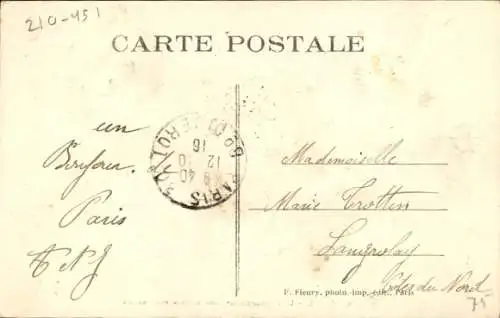 210-451
CARTE POSTALE
un
Bonjour
Paris
Mademoiselle
Marie Trotten
Langrolay
Côtes du Nord
75
F. Fleury, photo.-imp.-édit., Paris
PARIS
9 40
12 10
16